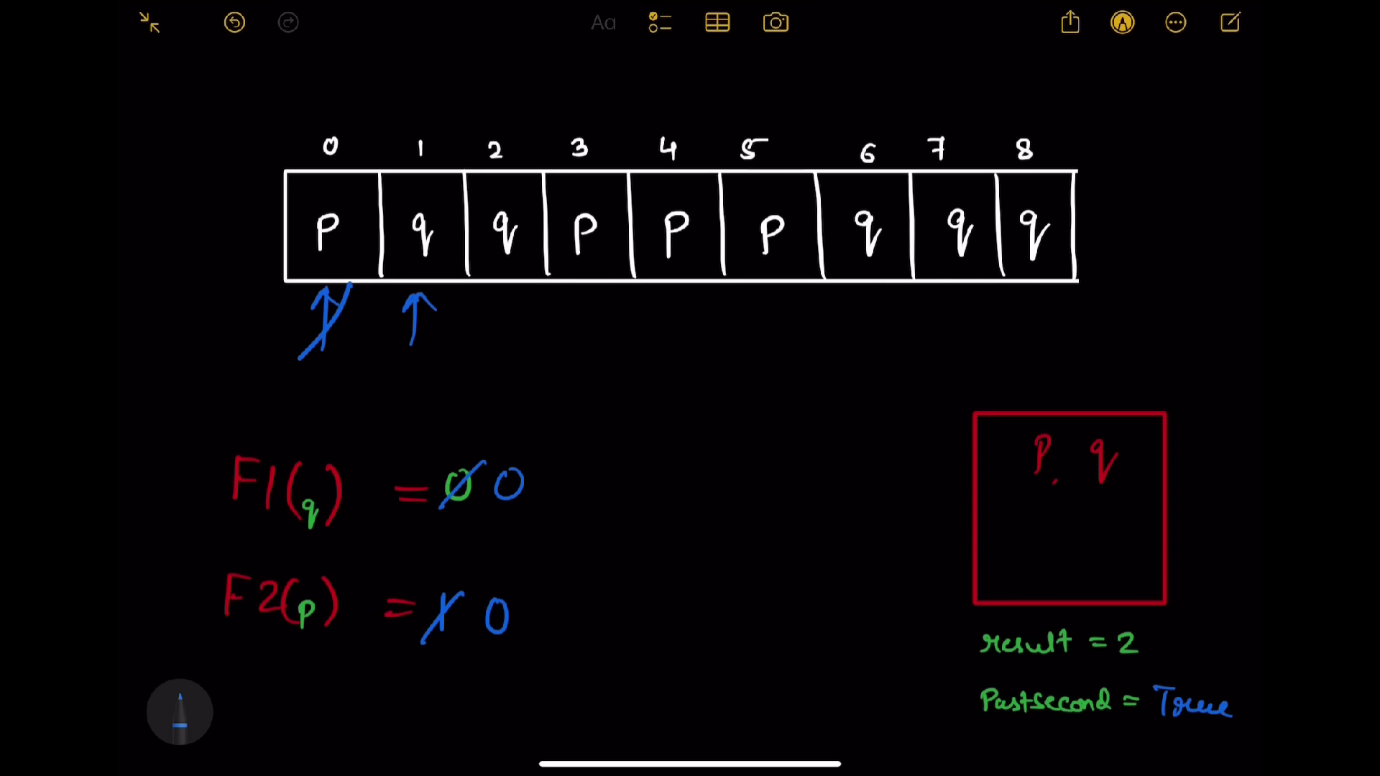 Aa
0 1 2 3 4 5 6 7 8
P q q P P P q q q
F1(q) = 0 0
F2(p) = 1 0
P, q
result = 2
Pastsecond = True